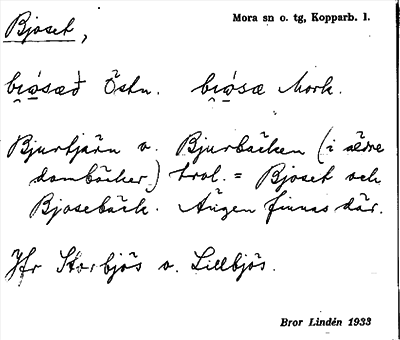 Bjoset,
Mora sn o. tg, Kopparb. l.
bi̯ǿsæð Östn. bi̯ǿsæ Mork.
Bjurtjärn o. Bjurbäcken (i äldre
domböcker) trol. = Bjoset och
Bjosebäck. Ängen finnas där.
Jfr Storbjös o. Lillbjös.
Bror Lindén 1933